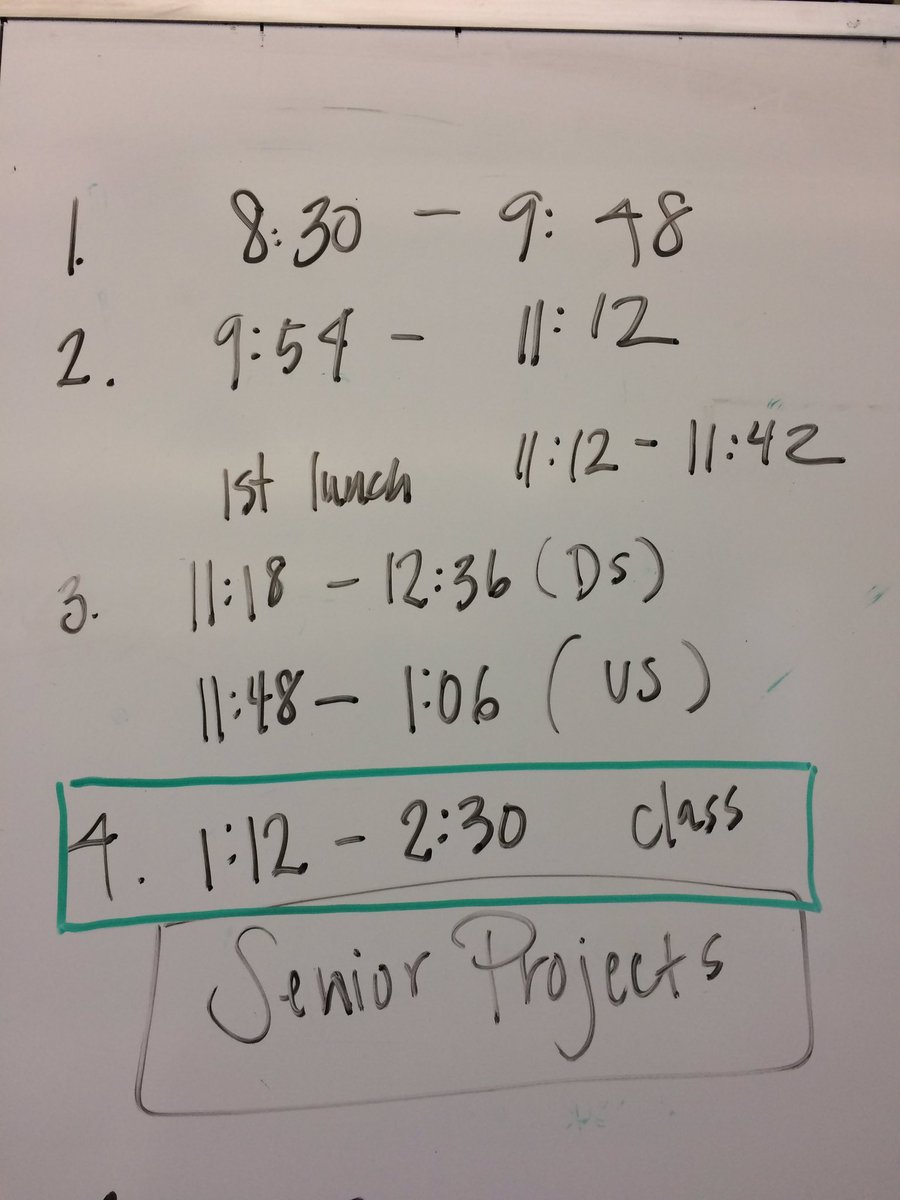 1. 8:30 - 9:48
2. 9:54 - 11:12
1st lunch 11:12 - 11:42
3. 11:18 - 12:36 (DS)
11:48 - 1:06 (US)
4. 1:12 - 2:30 class
Senior Projects